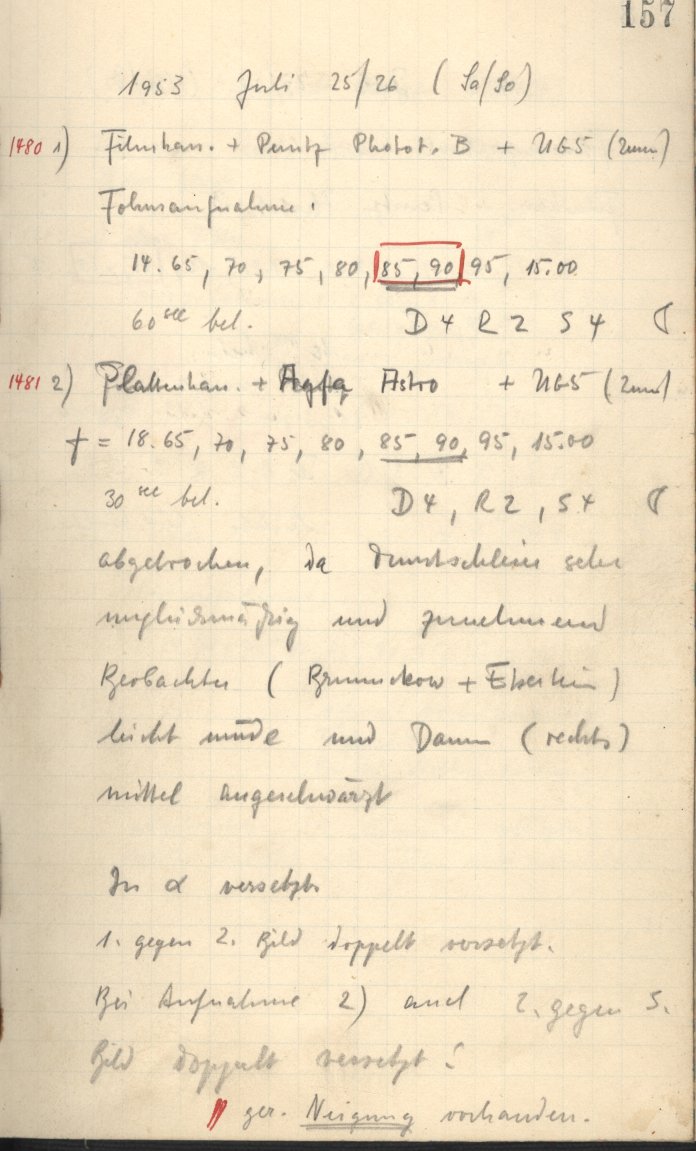 157
1953 Juli 25/26 (Sa/So)
1480 1) Filmkass. + Perutz Photot. B + UG5 (2mm)
Fokusaufnahme.
14.65, 70, 75, 80, 85, 90, 95, 15.00
60 sec bel. D4 R2 S4
1481 2) Plattenkass. + Agfa Astro + UG5 (2mm)
f = 18.65, 70, 75, 80, 85, 90, 95, 15.00
30 sec bel. D4, R2, S4
abgebrochen, da Dunstschleier sehr
ungleichmäßig und zunehmend
Beobachter ( + )
leicht müde und Daumen (rechts)
mittel angeschwärzt
In α versetzt
1. gegen 2. Bild doppelt versetzt.
Bei Aufnahme 2) auch gegen 5.
Bild doppelt versetzt
ger. Neigung vorhanden.